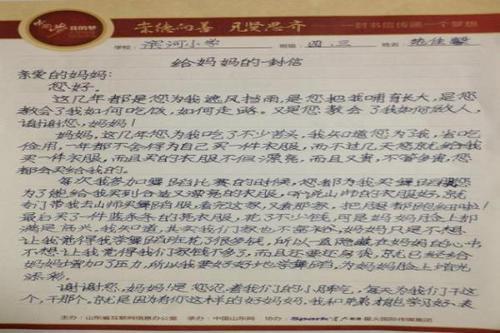 中国梦 我的梦
崇德向善 见贤思齐
一封书信传递一个梦想
学校：滨河小学 班级：四.三 姓名：
给妈妈的一封信
亲爱的妈妈：
您好。
这几年都是您为我遮风挡雨，是您把我哺育长大，是您
教会了我如何吃饭，如何走路。又是您教会了我如何做人，
谢谢您，妈妈！
妈妈，这几年您为我吃了不少苦头，我知道您为了我，省吃
俭用，一年都不舍得为自己买一件衣服，而不过几天您就给我
买一件衣服，而且买的衣服不但漂亮，而且又贵，不管多贵，您
都会买给我的。
每次我参加舞蹈比赛的时候，您都为我买舞蹈服，您
为了能给我买到合适又漂亮的衣服，听说山师的衣服好，就
专门带我去山师买舞蹈服，看完这家，又看那家，把腿都跑
最后买了一件蓝条条的亮衣服，花了不少钱，可是妈妈脸上却
满是高兴，我知道，其实我们家也不富裕，妈妈只是不想
让我觉得我学舞蹈班花了很多钱，所以一直隐藏在妈妈的心中
不想让我觉得我们家钱不多了，而且还要还房贷，就已经给
妈妈增加了压力，所以我要好好地学舞蹈，为妈妈脸上增光
添彩。
谢谢您，妈妈是您照着我们的小脾气，每天为我们干这
个，干那个，就是因为有你这样的好妈妈，我和弟弟才能学习好、表
主办单位：山东省互联网信息办公室 承办单位：中国山东网 星火国际传媒集团